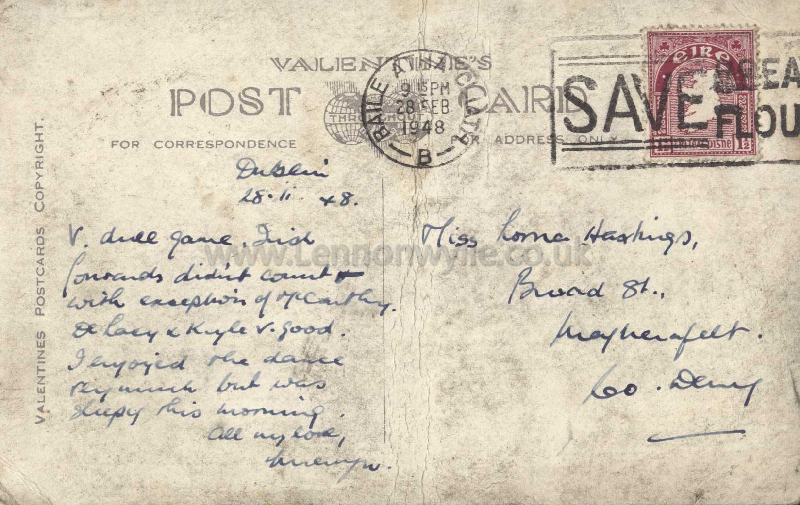 VALENTINE'S
POST CARD
THROUGHOUT
FOR CORRESPONDENCE
FOR ADDRESS ONLY
VALENTINES POSTCARDS COPYRIGHT.
BAILE ÁTHA CLIATH
9 15PM
28 FEB
1948
B
SAVE BREA
FLOU
éIRe
1½
Dublin
28.II.48.
V. dull game. Irish
forwards didn't count
with exception of McCarthy.
De Lacy & Kyle v. good.
I enjoyed the dance
very much but was
sleepy this morning.
All my love,
Miss Lorna Hastings,
Broad St.,
Magherafelt.
Co. Derry
www.Lennonwylie.co.uk